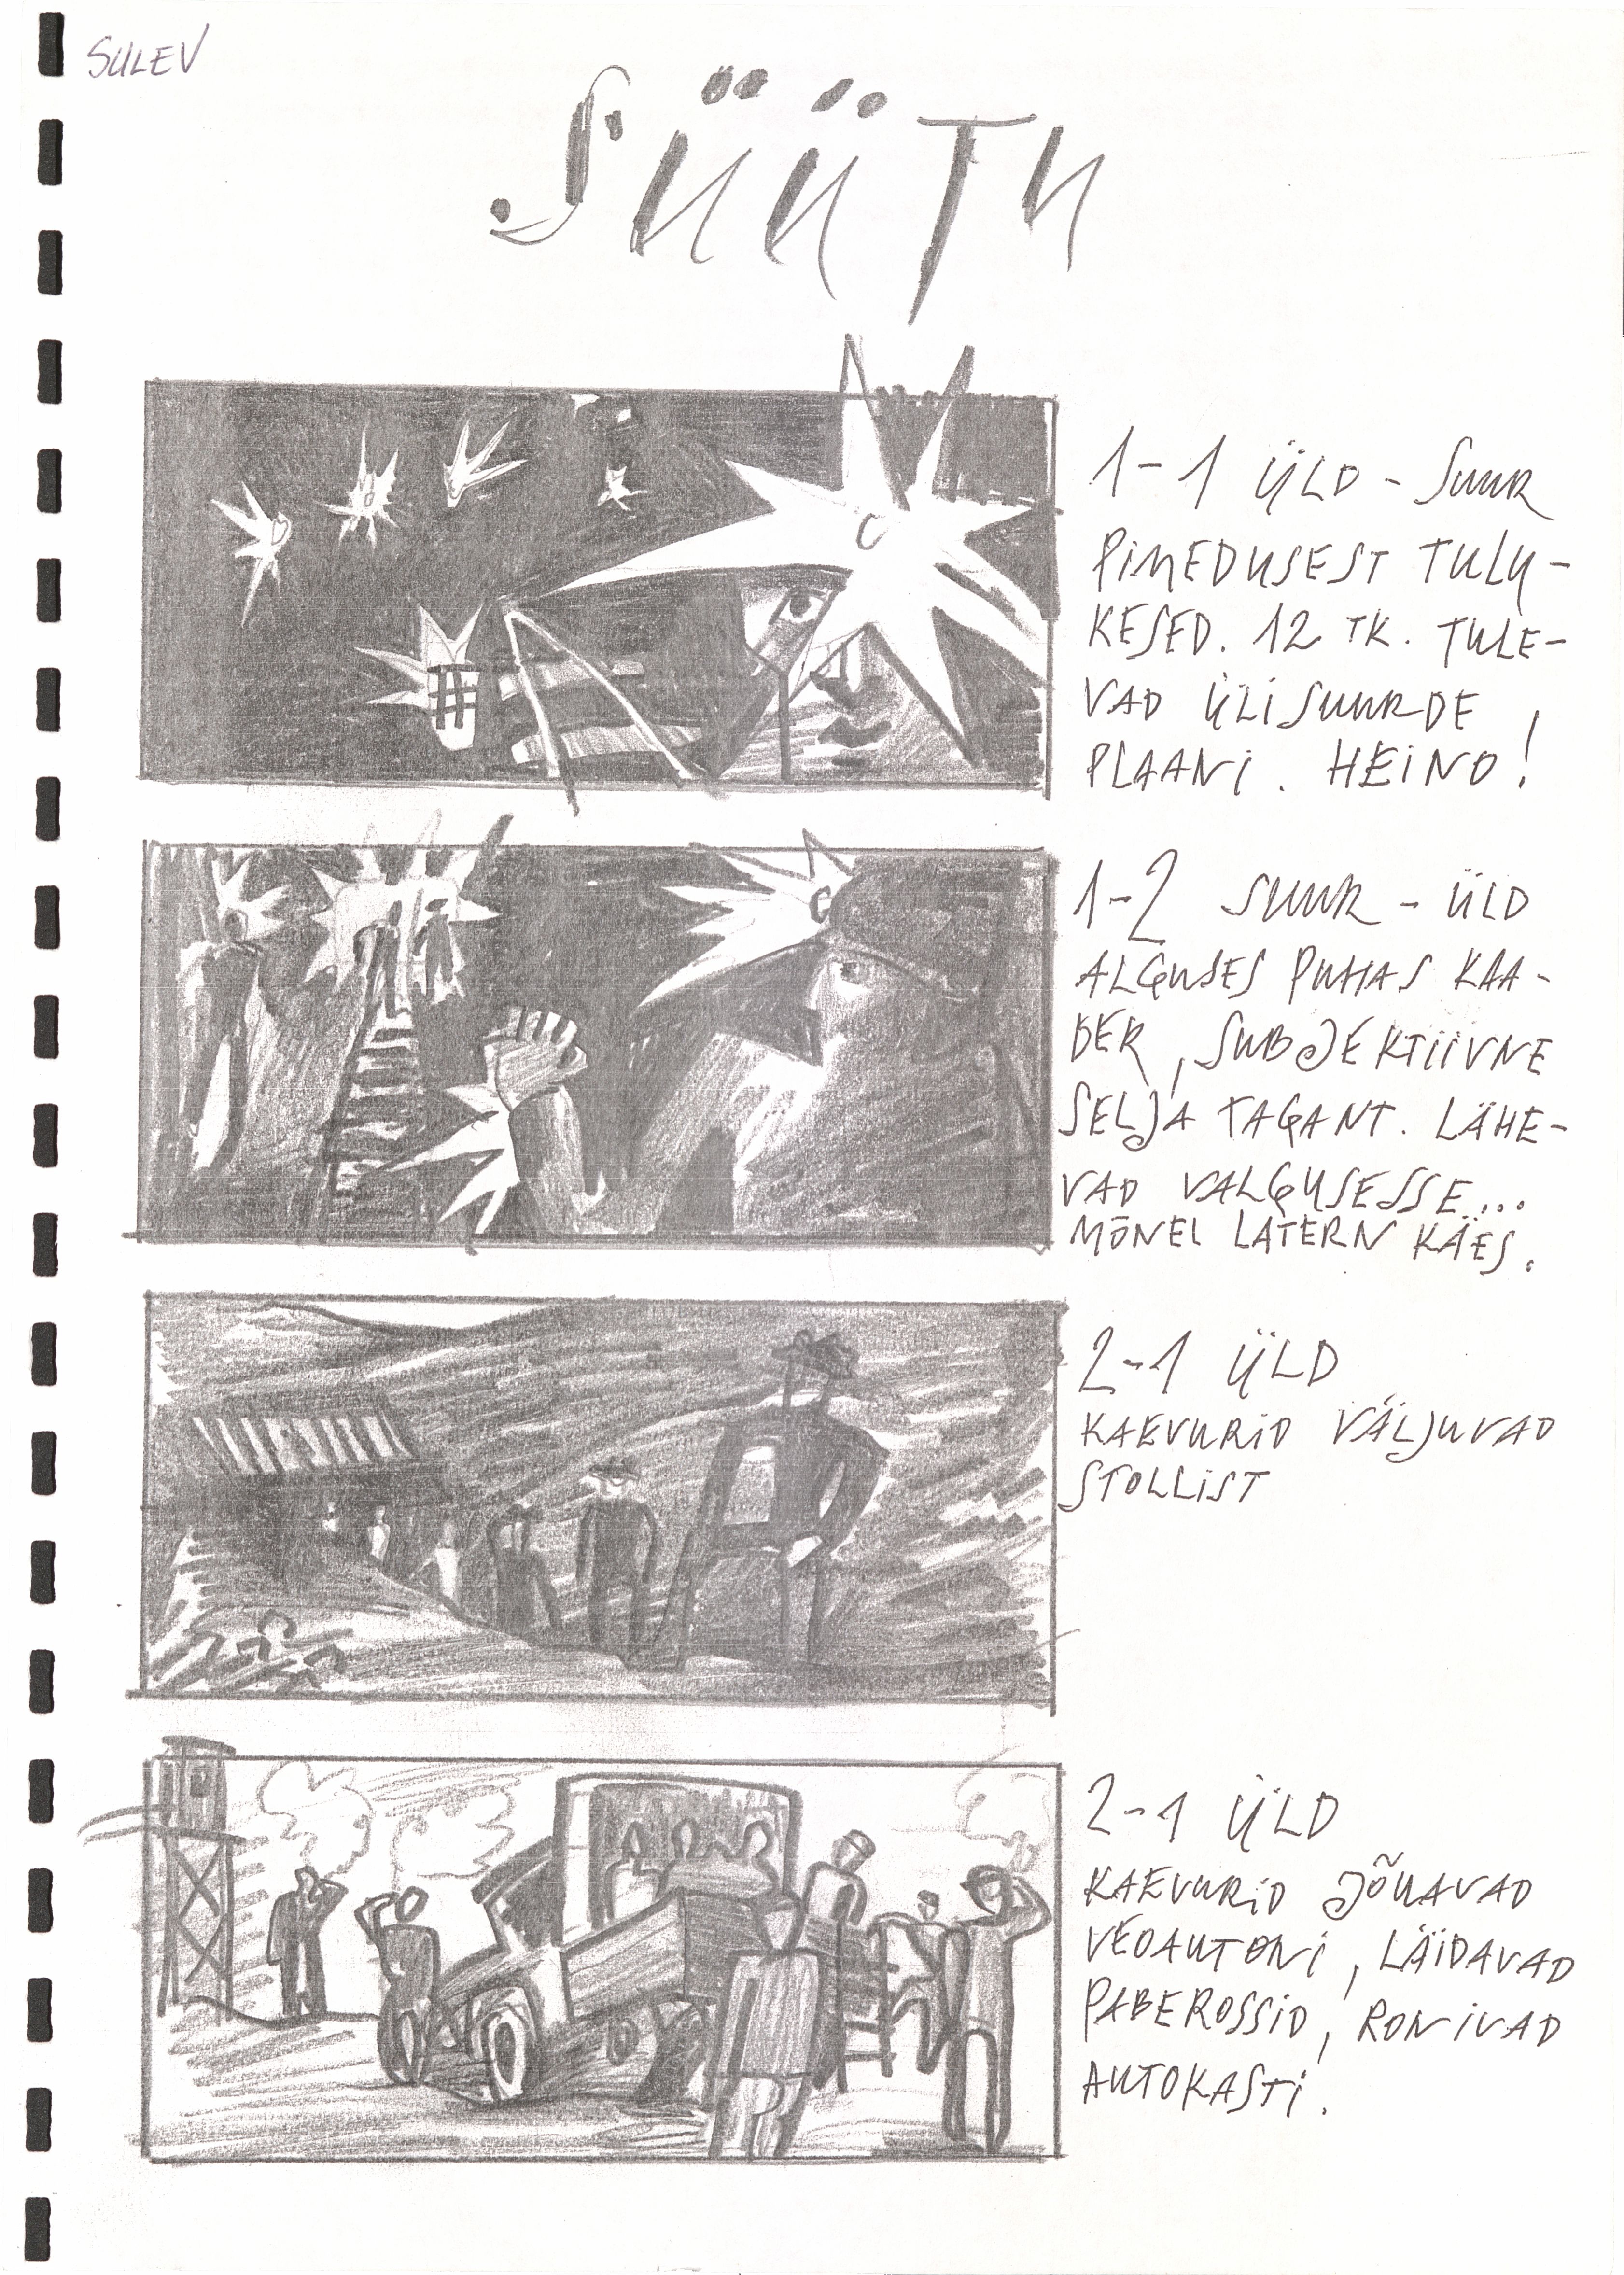 SULEV
SÜÜTU
1-1 ÜLD - SUUR
PIMEDUSEST TULU-
KESED. 12 TK. TULE-
VAD ÜLISUURDE
PLAANI. HEINO!
1-2 SUUR - ÜLD
ALGUSES PUHAS KAA-
DER, SUBJEKTIIVNE
SELJA TAGANT. LÄHE-
VAD VALGUSESSE...
MÕNEL LATERN KÄES.
2-1 ÜLD
KAEVURID VÄLJUVAD
STOLLIST
2-1 ÜLD
KAEVURID JÕUAVAD
VEOAUTONI, LÄIDAVAD
PABEROSSID, RONIVAD
AUTOKASTI.